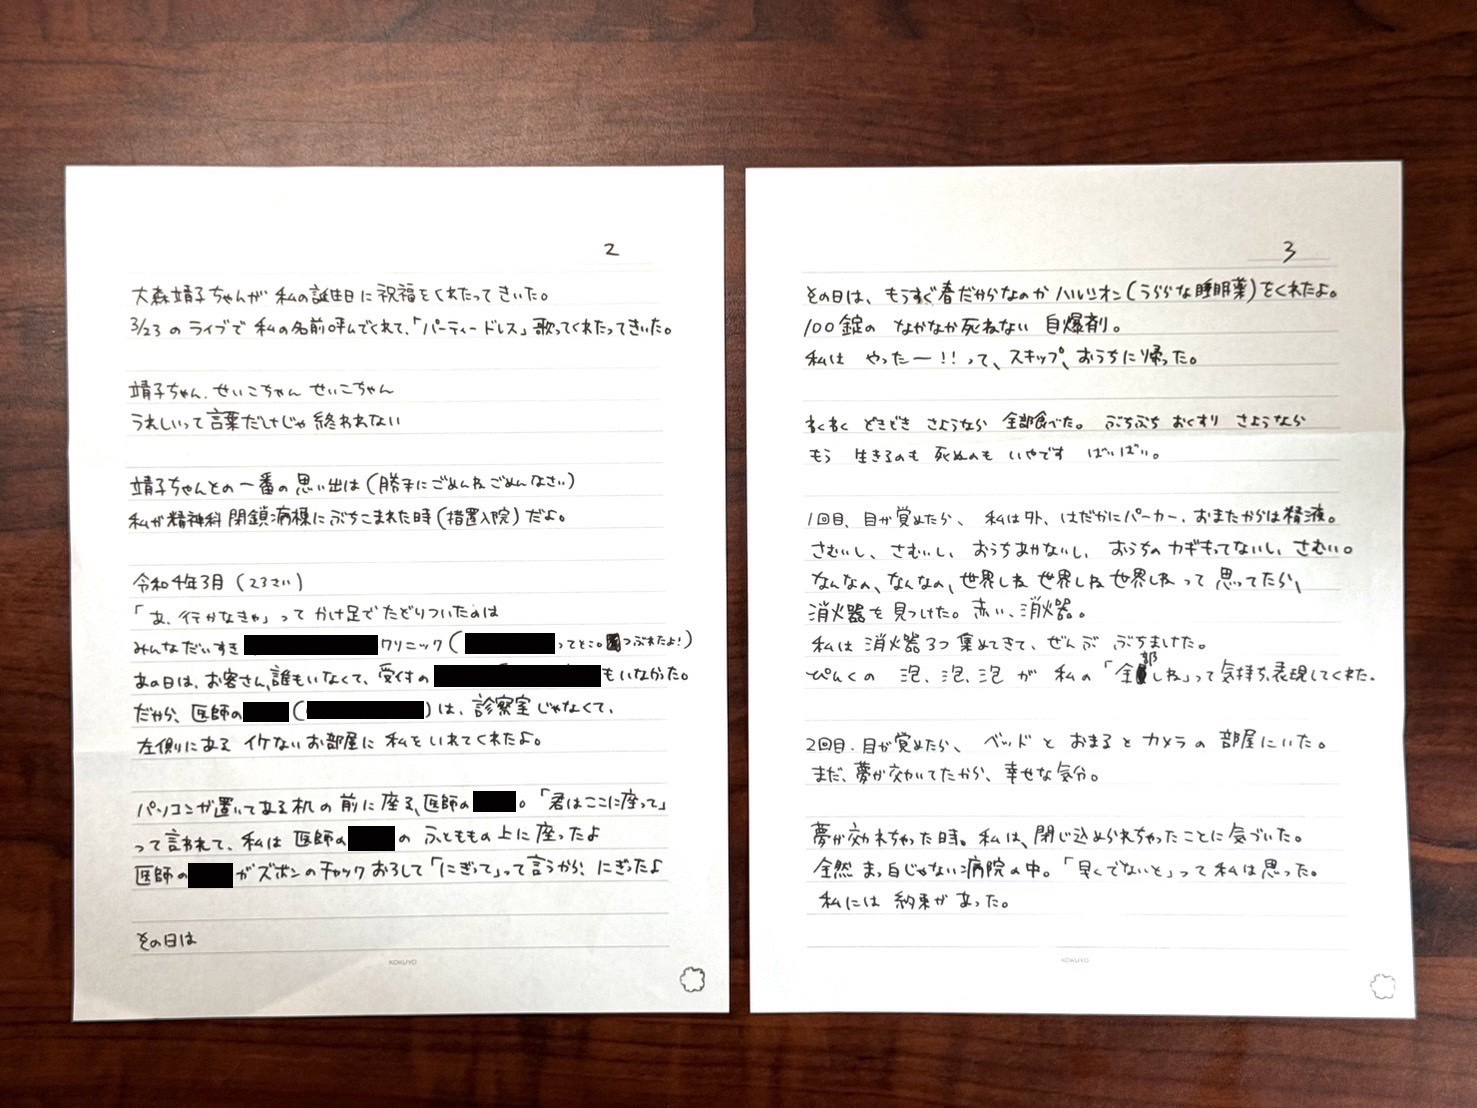 2
大森靖子ちゃんが 私の誕生日に祝福をくれたってきいた。
3/23 のライブで 私の名前呼んでくれて、「パーティードレス」歌ってくれたってきいた。
靖子ちゃん、せいこちゃん せいこちゃん
うれしいって言葉だけじゃ 終われない
靖子ちゃんとの一番の思い出は(勝手にごめんねごめんなさい)
私が精神科閉鎖病棟にぶちこまれた時(措置入院)だよ。
令和4年3月(23さい)
「あ、行かなきゃ」って かけ足でたどりついたのは
みんなだいすき クリニック( ってとこ。つぶれたよ!)
あの日は、お客さん、誰もいなくて、受付の もいなかった。
だから、医師の ( )は、診察室じゃなくて、
左側にある イケないお部屋に 私をいれてくれたよ。
パソコンが置いてある机の前に座る、医師の 。「君はここに座って」
って言われて、私は医師の の ふとももの上に座ったよ
医師の がズボンのチャックおろして「にぎって」って言うから、にぎったよ
その日は
KOKUYO
3
その日は、もうすぐ春だからなのか ハルシオン(うららな睡眠薬)をくれたよ。
100錠の なかなか死ねない 自爆剤。
私は やったー!!って、スキップ、おうちに帰った。
わくわく どきどき さようなら 全部食べた。 ぷちぷち おくすり さようなら
もう 生きるのも 死ぬのも いやです ばいばい。
1回目、目が覚めたら、 私は外、はだかにパーカー、おまたからは精液。
さむいし、さむいし、 おうちあかないし、 おうちのカギもってないし、さむい。
なんなの、なんなの、世界しね 世界しね 世界しね って 思ってたら、
消火器を見つけた。赤い、消火器。
私は 消火器3つ集めてきて、ぜんぶ ぶちました。
ぴんくの 泡、泡、泡 が 私の「全部しね」って気持ち、表現してくれた。
2回目、目が覚めたら、 ベッド と おまる と カメラ の 部屋にいた。
まだ、夢が効いてたから、幸せな気分。
夢が効れちゃった時。私は、閉じ込められちゃったことに気づいた。
全然まっ白じゃない病院の中。「早くでないと」って私は思った。
私には 約束があった。
KOKUYO